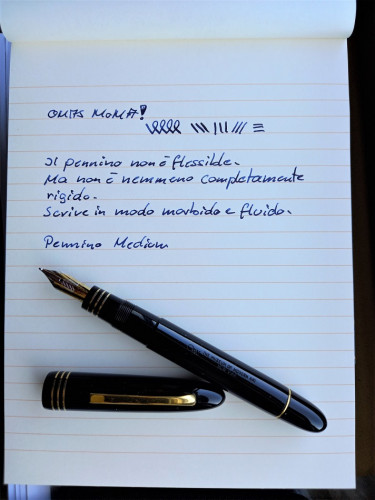 OMAS MoMA!
Il pennino non è flessibile.
Ma non è nemmeno completamente
rigido.
Scrive in modo morbido e fluido.
Pennino Medium